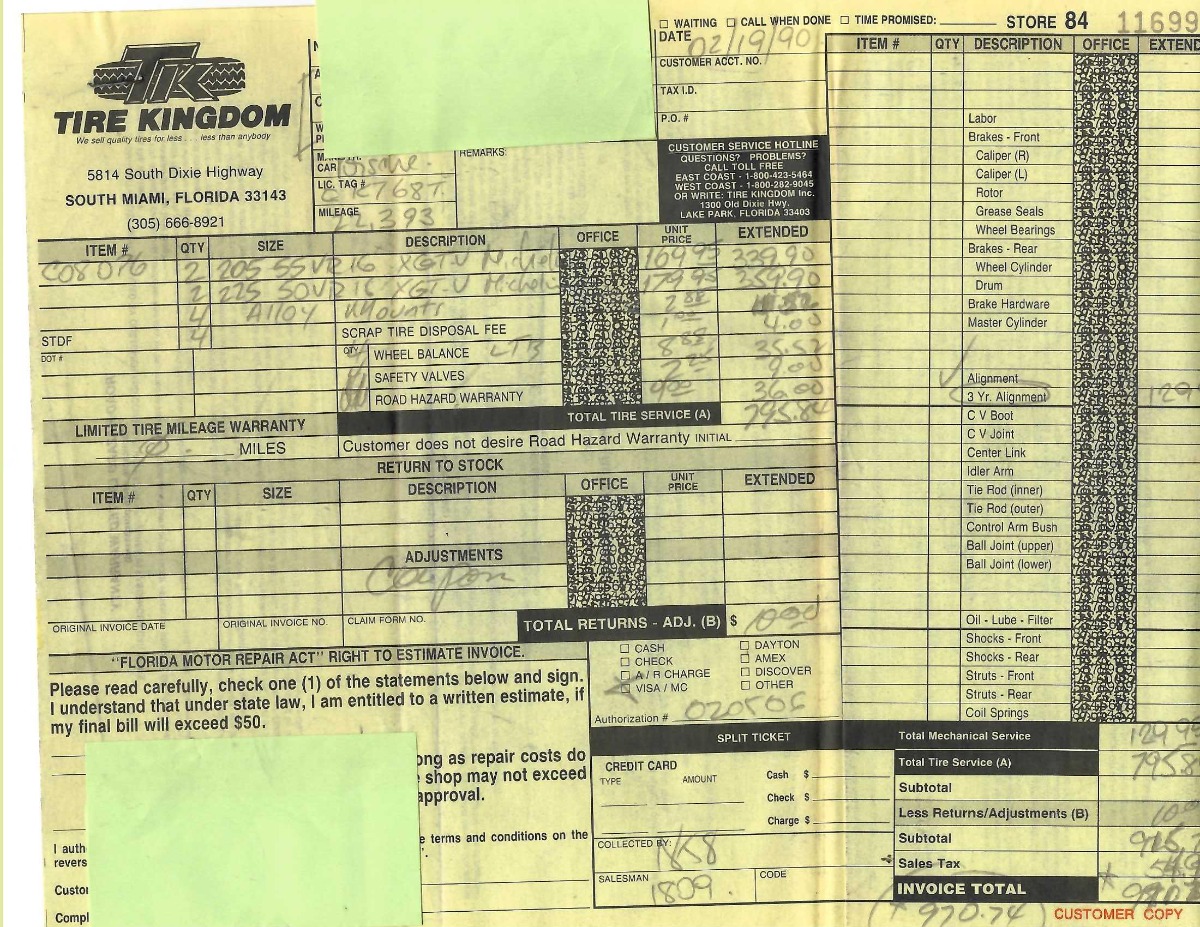 TK
TIRE KINGDOM
We sell quality tires for less . . . less than anybody
5814 South Dixie Highway
SOUTH MIAMI, FLORIDA 33143
(305) 666-8921
CAR Porsche.
LIC. TAG #
MILEAGE 22,393
REMARKS:
☐ WAITING ☐ CALL WHEN DONE ☐ TIME PROMISED: STORE 84 11699
DATE 02/19/90
CUSTOMER ACCT. NO.
TAX I.D.
P.O. #
CUSTOMER SERVICE HOTLINE
QUESTIONS? PROBLEMS?
CALL TOLL FREE
EAST COAST - 1-800-423-5464
WEST COAST - 1-800-282-9045
OR WRITE: TIRE KINGDOM Inc.
1300 Old Dixie Hwy.
LAKE PARK, FLORIDA 33403
ITEM # QTY SIZE DESCRIPTION OFFICE UNIT PRICE EXTENDED
2 205 55VR16 XGT-V Michelin 169.95 339.90
2 225 50VR16 XGT-V Michelin 179.95 359.90
4 Alloy Mounts 2.88 11.52
STDF 4 SCRAP TIRE DISPOSAL FEE 1.00 4.00
DOT # QTY 4 WHEEL BALANCE 8.88 35.52
SAFETY VALVES 2.25 9.00
ROAD HAZARD WARRANTY 9.00 36.00
TOTAL TIRE SERVICE (A) 795.84
LIMITED TIRE MILEAGE WARRANTY
MILES
Customer does not desire Road Hazard Warranty INITIAL
RETURN TO STOCK
ITEM # QTY SIZE DESCRIPTION OFFICE UNIT PRICE EXTENDED
ADJUSTMENTS
Coupon
ORIGINAL INVOICE DATE ORIGINAL INVOICE NO. CLAIM FORM NO.
TOTAL RETURNS - ADJ. (B) $ 10.00
"FLORIDA MOTOR REPAIR ACT" RIGHT TO ESTIMATE INVOICE.
Please read carefully, check one (1) of the statements below and sign.
I understand that under state law, I am entitled to a written estimate, if
my final bill will exceed $50.
ong as repair costs do
shop may not exceed
approval.
e terms and conditions on the
I auth
revers
Custo
Compl
☐ CASH ☐ DAYTON
☐ CHECK ☐ AMEX
☐ A / R CHARGE ☐ DISCOVER
☐ VISA / MC ☐ OTHER
Authorization # 020506
SPLIT TICKET
CREDIT CARD
TYPE AMOUNT
Cash $
Check $
Charge $
COLLECTED BY:
SALESMAN 1809
CODE
ITEM # QTY DESCRIPTION OFFICE EXTEND
Labor
Brakes - Front
Caliper (R)
Caliper (L)
Rotor
Grease Seals
Wheel Bearings
Brakes - Rear
Wheel Cylinder
Drum
Brake Hardware
Master Cylinder
Alignment
3 Yr. Alignment 129
C V Boot
C V Joint
Center Link
Idler Arm
Tie Rod (inner)
Tie Rod (outer)
Control Arm Bush
Ball Joint (upper)
Ball Joint (lower)
Oil - Lube - Filter
Shocks - Front
Shocks - Rear
Struts - Front
Struts - Rear
Coil Springs
Total Mechanical Service 129.95
Total Tire Service (A) 795.8
Subtotal
Less Returns/Adjustments (B) 10.0
Subtotal
Sales Tax
INVOICE TOTAL
970.74
CUSTOMER COPY